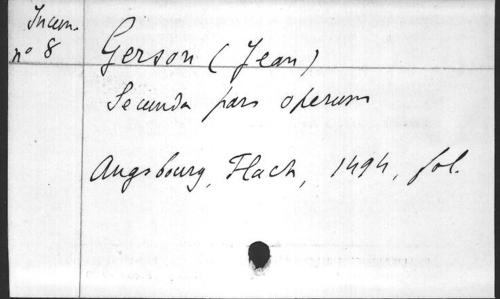 Incun.
n° 8
Gerson (Jean)
Secunda pars operum
Augsbourg, Flach, 1494, fol.